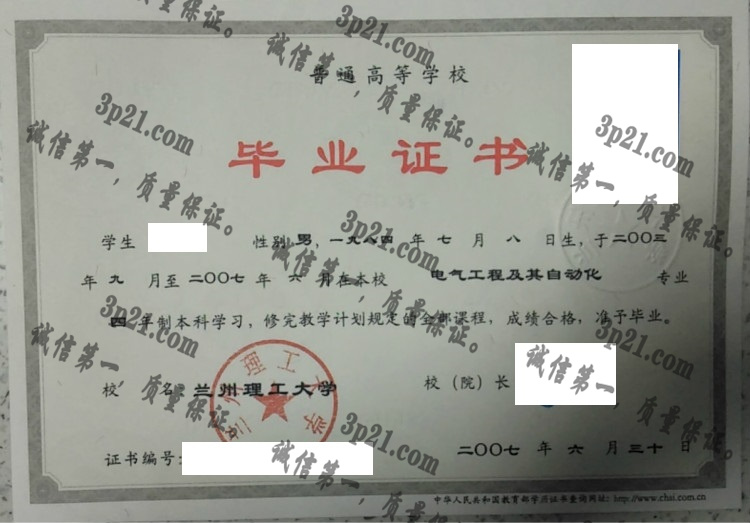 普通高等学校
毕业证书
学生 性别 男，一九八四 年 七 月 八 日生，于二〇〇三
年 九 月至 二〇〇七 年 六 月在本校 电气工程及其自动化 专业
四 年制本科学习，修完教学计划规定的全部课程，成绩合格，准予毕业。
校 名 兰州理工大学 校（院）长
证书编号： 二〇〇七 年 六 月 三十 日
中华人民共和国教育部学历证书查询网址：http://www.chsi.com.cn
兰州理工大学
3p21.com
诚信第一，质量保证。
3p21.com
诚信第一，质量保证。
3p21.com
诚信第一，质量保证。
3p21.com
诚信第一，质量保证。
3p21.com
诚信第一，质量保证。
3p21.com
诚信第一，质量保证。
3p21.com
诚信第一，质量保证。